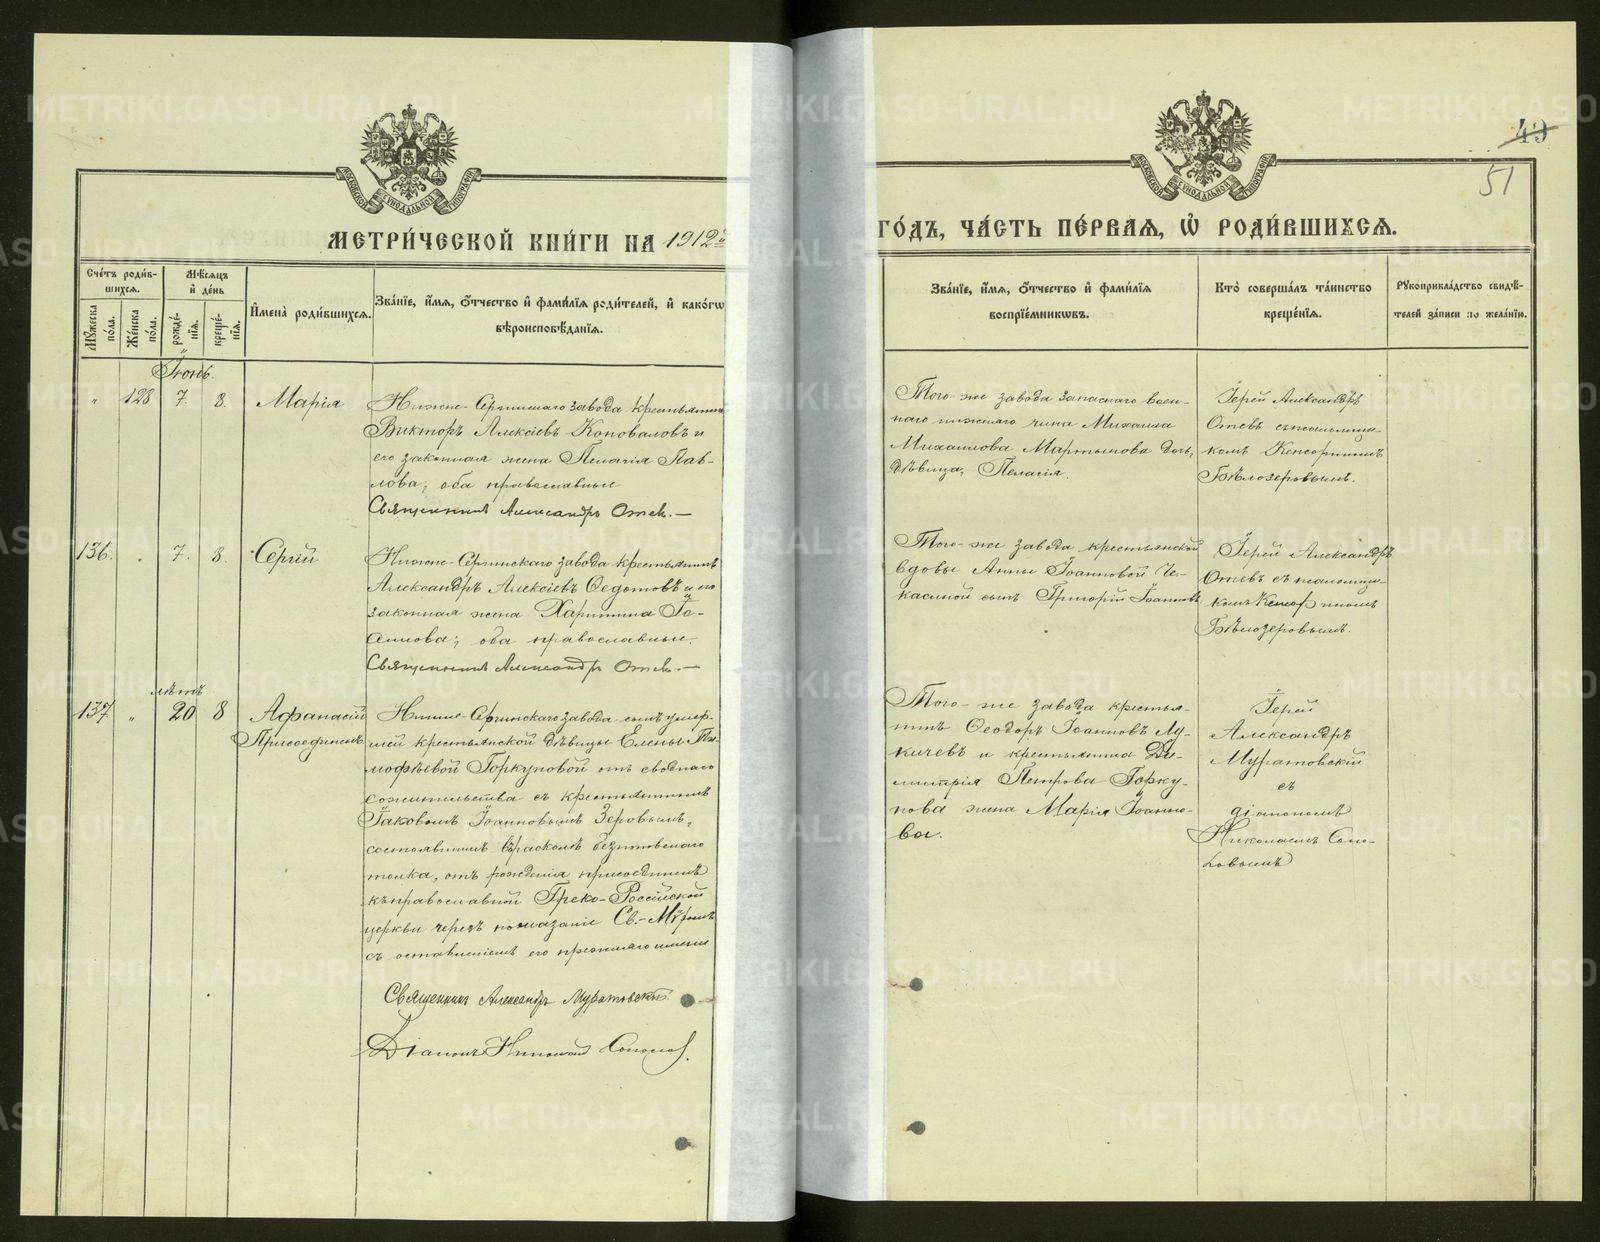 METRIKI.GASO-URAL.RU
49
51
МЕТРИ́ЧЕСКОЙ КНИ́ГИ НА 1912й
ГО́ДЪ, ЧА́СТЬ ПЕ́РВАѦ, Ѡ҆ РОДИ́ВШИХСѦ.
Сче́тъ роди́в-
шихсѧ.
Мꙋ́жеска
по́ла.
Же́нска
по́ла.
Мѣ́сѧцъ
и҆ де́нь
рожде́-
нїѧ.
креще́-
нїѧ.
И҆мена̀ роди́вшихсѧ.
Зва́нїе, и҆́мѧ, ѻ҆́тчество и҆ фами́лїѧ роди́телей, и҆ како́гѡ
вѣроисповѣ́данїѧ.
Зва́нїе, и҆́мѧ, ѻ҆́тчество и҆ фами́лїѧ
воспрїе́мникѡвъ.
Кто̀ соверша́лъ та́инство
креще́нїѧ.
Рꙋкоприкла́дство свидѣ́-
телей за́писи по жела́нїю.
Іюнь.
" 128 7. 8. Марія
Нижне-Сергинскаго завода крестьянинъ
Викторъ Алексіевъ Коноваловъ и
его законная жена Пелагія Пав-
лова; оба православные
Священникъ Александръ Отев.
Того-же завода запаснаго воен-
наго нижняго чина Михаила
Михаилова Мартынова дочь,
дѣвица, Пелагія.
Іерей Александръ
Отевъ съ псаломщи-
комъ Кенсориномъ
Бѣлозеровымъ.
136. " 7. 8. Сергій
Нижне-Сергинскаго завода крестьянинъ
Александръ Алексіевъ Ѳедотовъ и его
законная жена Харитина Іо-
аннова; оба православные.
Священникъ Александръ Отев.
Того-же завода крестьянской
вдовы Анны Іоанновой Че-
касиной сынъ Григорій Іоанновъ
Іерей Александръ
Отевъ съ псаломщи-
комъ Кенсориномъ
Бѣлозеровымъ.
лѣтъ
137 " 20 8 Аѳанасій
Присоединенъ
Нижне-Сергинскаго завода сынъ умер-
шей крестьянской дѣвицы Елены Ти-
мофѣевой Горкуновой отъ своднаго
сожительства съ крестьяниномъ
Іаковомъ Іоанновымъ Зеровымъ,
состоявшимъ въ расколѣ безповскаго
толка, отъ рожденія присоединенъ
къ православной Греко-Россійской
церкви чрезъ помазаніе Св.-Мѵромъ
съ оставленіемъ его прежняго имени
Священникъ Александръ Муратовскій.
Діаконъ Николай Соколов.
Того-же завода крестья-
нинъ Ѳеодоръ Іоанновъ Лу-
кичевъ и крестьянина Ди-
митрія Петрова Горку-
нова жена Марія Іоанно-
ва.
Іерей
Александръ
Муратовскій
съ
діакономъ
Николаемъ Соко-
ловымъ